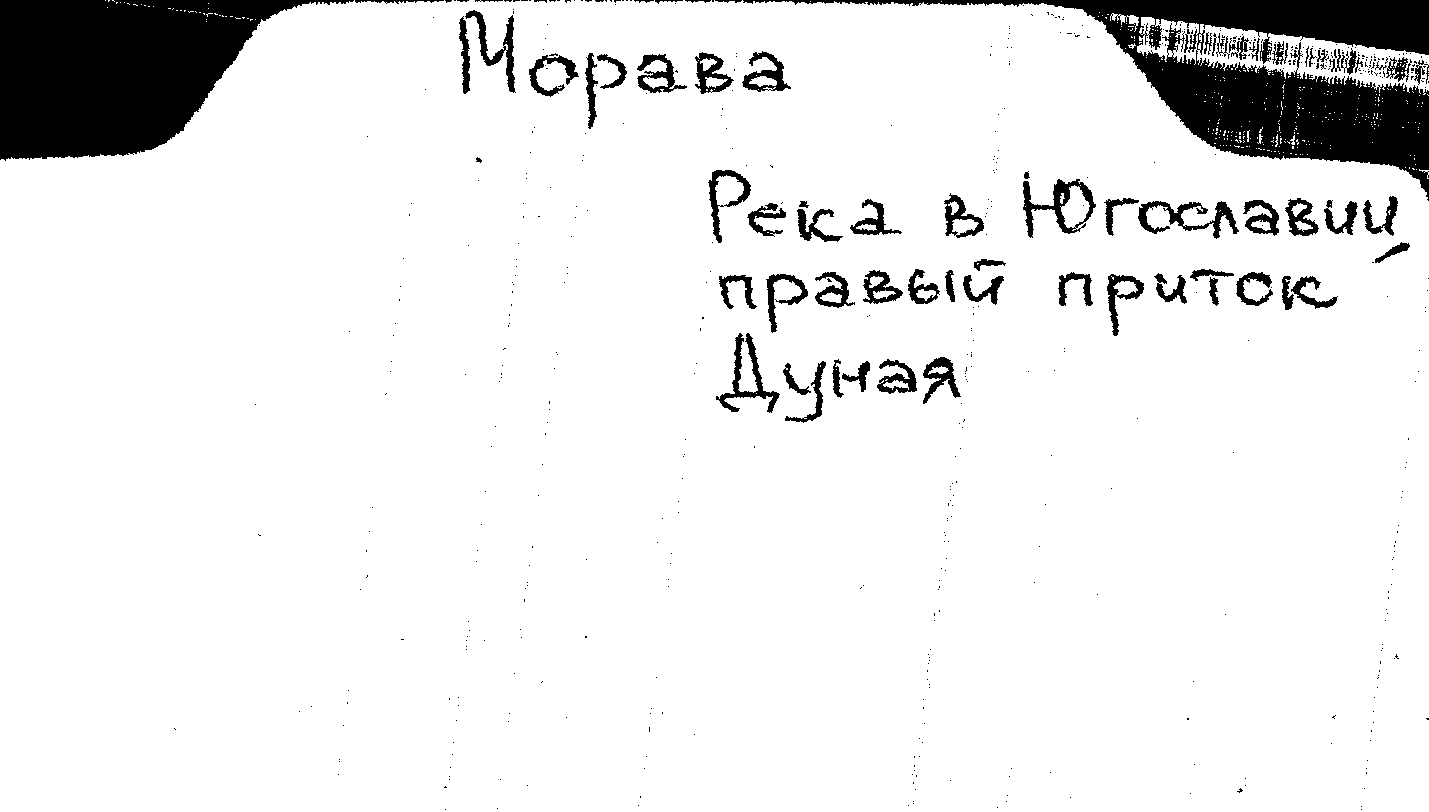 Морава
Река в Югославии,
правый приток
Дуная